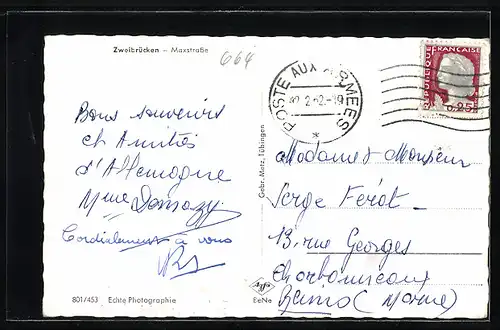 Zweibrücken – Maxstraße
664
POSTE AUX ARMEES
2-2-19
*
REPUBLIQUE FRANÇAISE
0,25
Bons souvenirs
et Amitiés
d'Allemagne
Mme
Cordialement à vous
Gebr. Metz, Tübingen
Madame et Monsieur
Serge Férot
13, rue Georges
Charbonneaux
Reims (Marne)
801/453 Echte Photographie
Agfa
BeNe